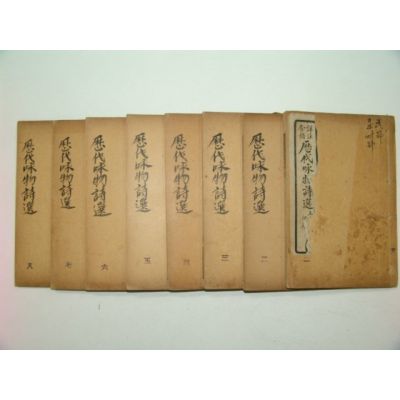 歷代咏物詩選
一
歷代咏物詩選
二
歷代咏物詩選
三
歷代咏物詩選
四
歷代咏物詩選
五
歷代咏物詩選
六
歷代咏物詩選
七
歷代咏物詩選
八